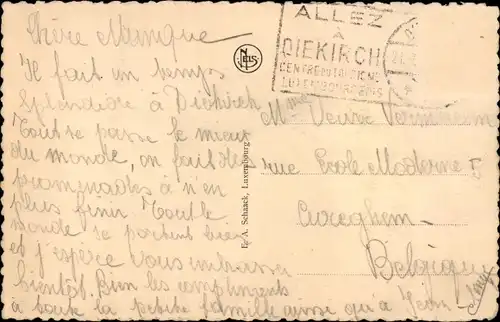 Chère Manique
Il fait un temps
splendide à Diekirch
Tout se passe le mieux
du monde, on fait des
promenades à n'en
plus finir Tout le
monde se portent bien
et j'espère vous embrasser
bientôt. Bien les compliments
à toute la petite famille ainsi qu'à
NELS
E. A. Schaack, Luxembourg
ALLEZ
À
DIEKIRCH
CENTRE DU TOURISME
LUXEMBOURGEOIS
Mme Veuve
rue Ecole Moderne 5
Cureghem
Belgique